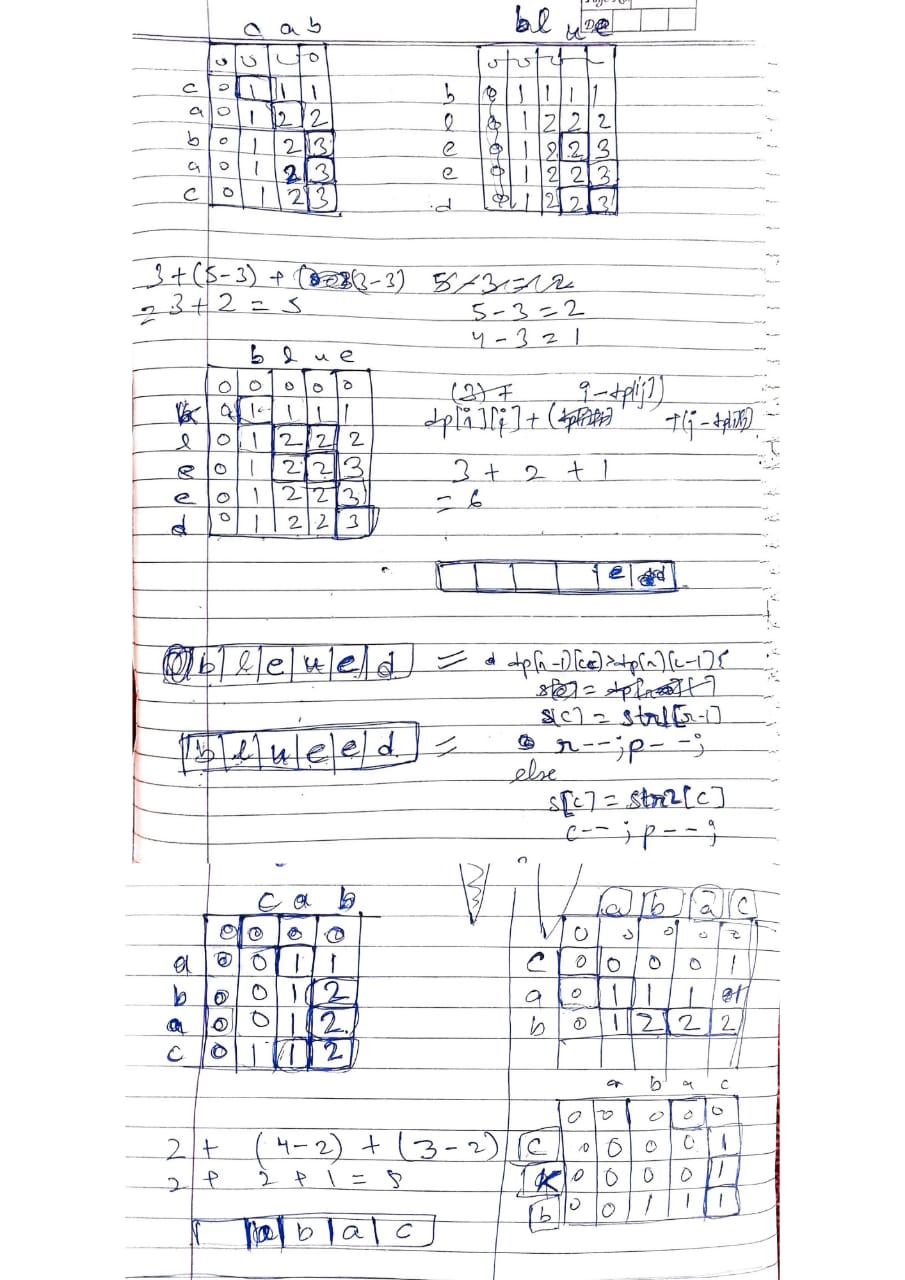 c a b
0 0 0 0
c 0 1 1 1
a 0 1 2 2
b 0 1 2 3
a 0 1 2 3
c 0 1 2 3
b l u e
b 0 1 1 1 1
l 0 1 2 2 2
e 0 1 2 2 3
e 0 1 2 2 3
d 0 1 2 2 3
3+(5-3) + (3-3)
= 3+2 = 5
5-3=2
5-3=2
4-3=1
b l u e
0 0 0 0 0
b 0 1 1 1 1
l 0 1 2 2 2
e 0 1 2 2 3
e 0 1 2 2 3
d 0 1 2 2 3
i-dp[i][j])
dp[i][j] + ( +(j-dp[i][j])
3 + 2 + 1
= 6
e d
b l e u e d =
b l u e e d =
dp[r-1][c]>dp[r][c-1]{
s[c] = str1[r-1]
r--;p--;
else
s[c] = str2[c]
c--;p--;
c a b
0 0 0 0
a 0 0 1 1
b 0 0 1 2
a 0 0 1 2
c 0 1 1 2
a b a c
0 0 0 0 0
c 0 0 0 0 1
a 0 1 1 1
b 0 1 2 2 2
a b a c
0 0 0 0 0
c 0 0 0 0 1
0 0 0 0 1
b 0 0 1 1 1
2 + (4-2) + (3-2)
2 + 2 + 1 = 5
b a c